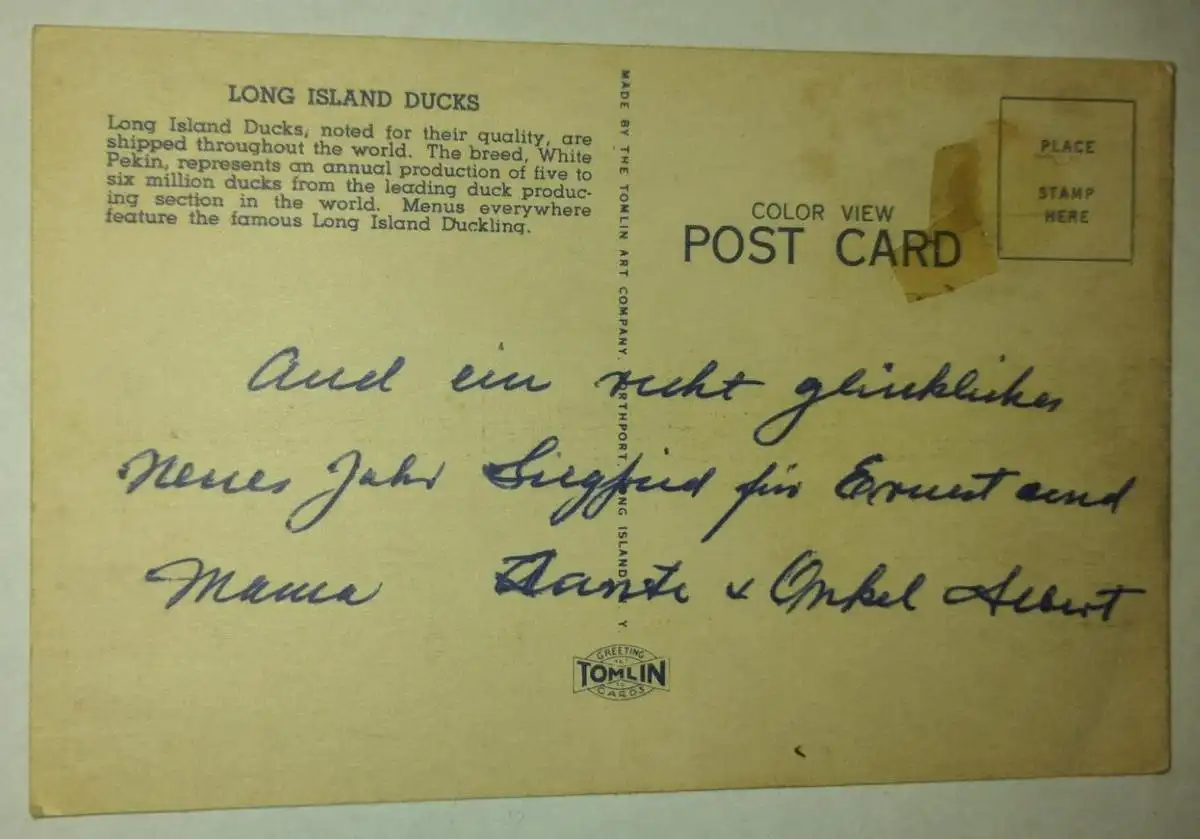 LONG ISLAND DUCKS
Long Island Ducks, noted for their quality, are
shipped throughout the world. The breed, White
Pekin, represents an annual production of five to
six million ducks from the leading duck produc-
ing section in the world. Menus everywhere
feature the famous Long Island Duckling.
MADE BY THE TOMLIN ART COMPANY, NORTHPORT, LONG ISLAND, N. Y.
PLACE
STAMP
HERE
COLOR VIEW
POST CARD
Und ein recht glückliches
Neues Jahr Siegfried für Ernest und
Mama Tante + Onkel Albert
GREETING
TOMLIN
CARDS